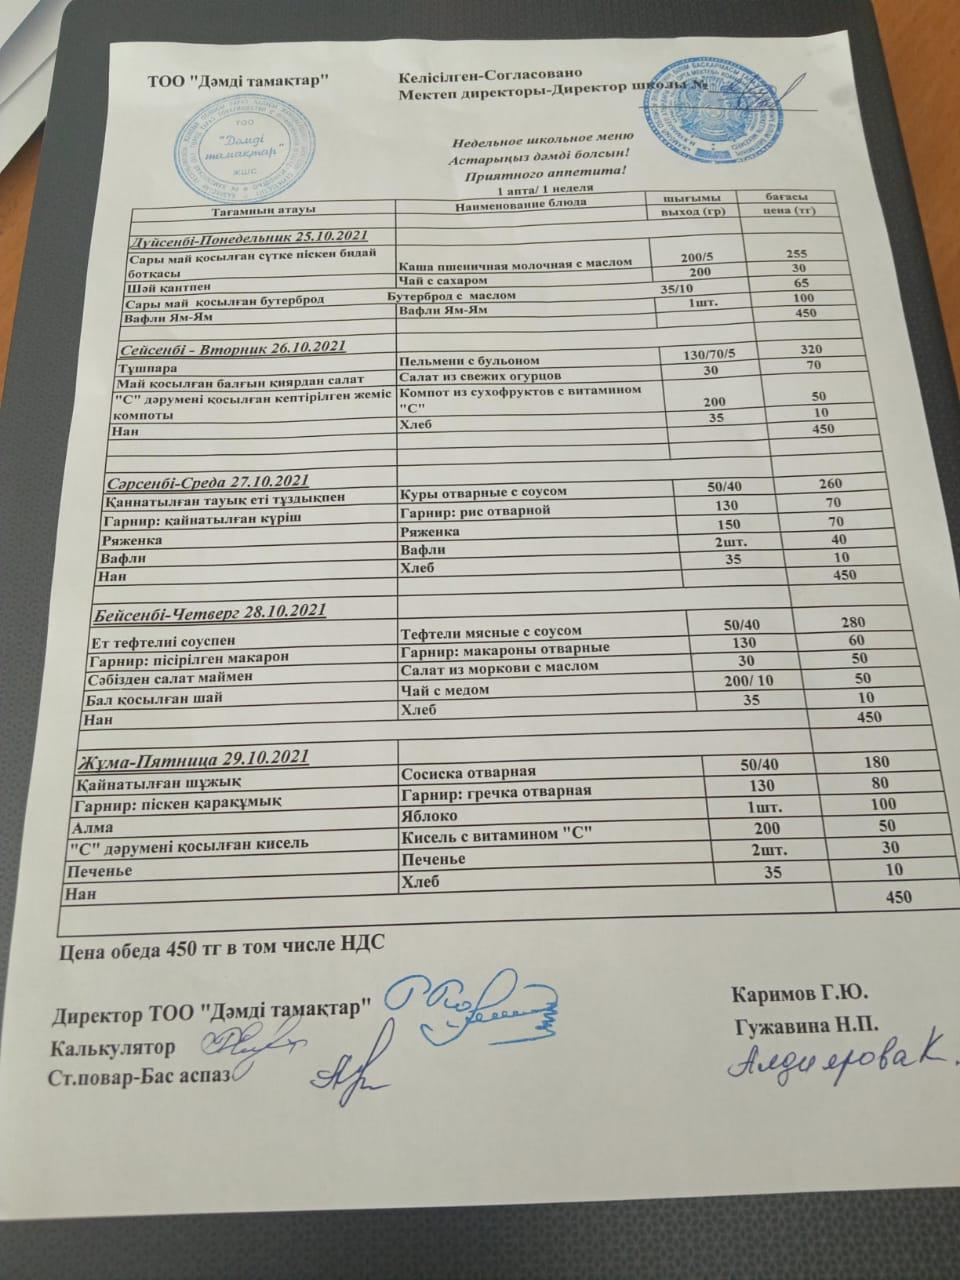 ТОО "Дәмді тамақтар"
Келісілген-Согласовано
Мектеп директоры-Директор школы №
ТОО
"Дәмді тамақтар"
ЖШС
Недельное школьное меню
Астарыңыз дәмді болсын!
Приятного аппетита!
1 апта/ 1 неделя
Тағамның атауы Наименование блюда шығымы бағасы
выход (гр) цена (тг)
Дүйсенбі-Понедельник 25.10.2021
Сары май қосылған сүтке піскен бидай
ботқасы Каша пшеничная молочная с маслом 200/5 255
Шәй қантпен Чай с сахаром 200 30
Сары май қосылған бутерброд Бутерброд с маслом 35/10 65
Вафли Ям-Ям Вафли Ям-Ям 1шт. 100
450
Сейсенбі - Вторник 26.10.2021
Тұшпара Пельмени с бульоном 130/70/5 320
Май қосылған балғын қиярдан салат Салат из свежих огурцов 30 70
"С" дәрумені қосылған кептірілген жеміс Компот из сухофруктов с витамином
компоты "С" 200 50
Нан Хлеб 35 10
450
Сәрсенбі-Среда 27.10.2021
Қаннатылған тауық еті тұздықпен Куры отварные с соусом 50/40 260
Гарнир: қайнатылған күріш Гарнир: рис отварной 130 70
Ряженка Ряженка 150 70
Вафли Вафли 2шт. 40
Нан Хлеб 35 10
450
Бейсенбі-Четверг 28.10.2021
Ет тефтелиі соуспен Тефтели мясные с соусом 50/40 280
Гарнир: пісірілген макарон Гарнир: макароны отварные 130 60
Сәбізден салат маймен Салат из моркови с маслом 30 50
Бал қосылған шай Чай с медом 200/ 10 50
Нан Хлеб 35 10
450
Жұма-Пятница 29.10.2021
Қайнатылған шұжық Сосиска отварная 50/40 180
Гарнир: піскен қарақұмық Гарнир: гречка отварная 130 80
Алма Яблоко 1шт. 100
"С" дәрумені қосылған кисель Кисель с витамином "С" 200 50
Печенье Печенье 2шт. 30
Нан Хлеб 35 10
450
Цена обеда 450 тг в том числе НДС
Директор ТОО "Дәмді тамақтар" Каримов Г.Ю.
Калькулятор Гужавина Н.П.
Ст.повар-Бас аспаз Алдиярова К.